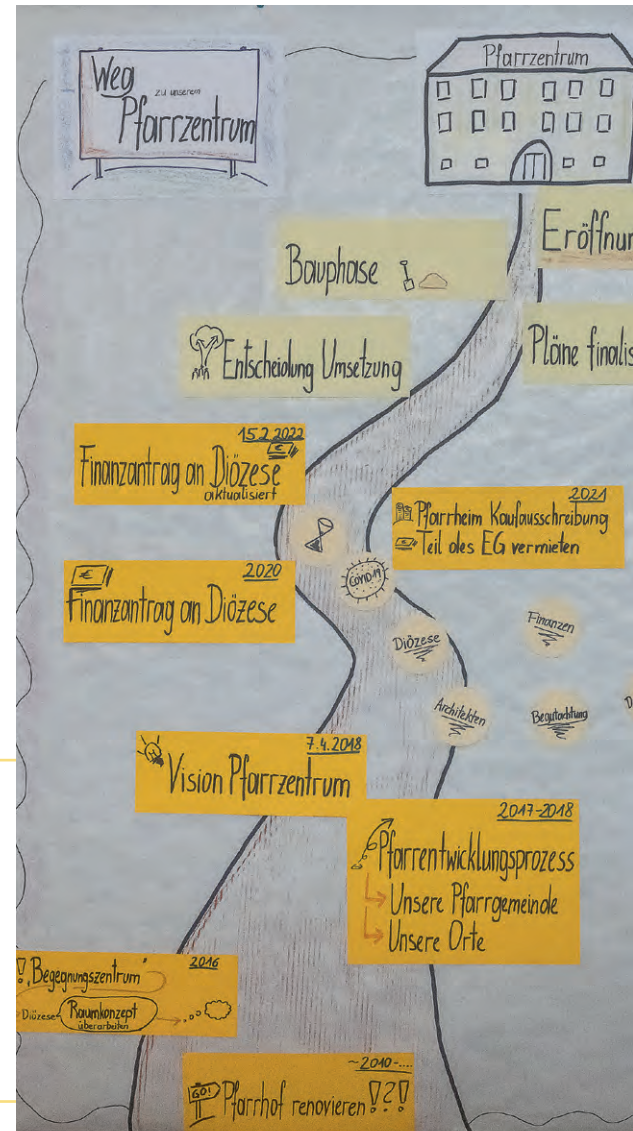 Weg
zu unserem
Pfarrzentrum
Pfarrzentrum
Eröffnun
Bauphase
Pläne finalis
Entscheidung Umsetzung
15.2.2022
Finanzantrag an Diözese
aktualisiert
2021
Pfarrheim Kaufausschreibung
Teil des EG vermieten
€ 2020
Finanzantrag an Diözese
COVID19
Diözese
Finanzen
Architekten
Begutachtung
D
7.4.2018
Vision Pfarrzentrum
2017-2018
Pfarrentwicklungsprozess
Unsere Pfarrgemeinde
Unsere Orte
2016
! "Begegnungszentrum"
Diözese Raumkonzept
überarbeiten
~2010-....
GO! Pfarrhof renovieren !?!